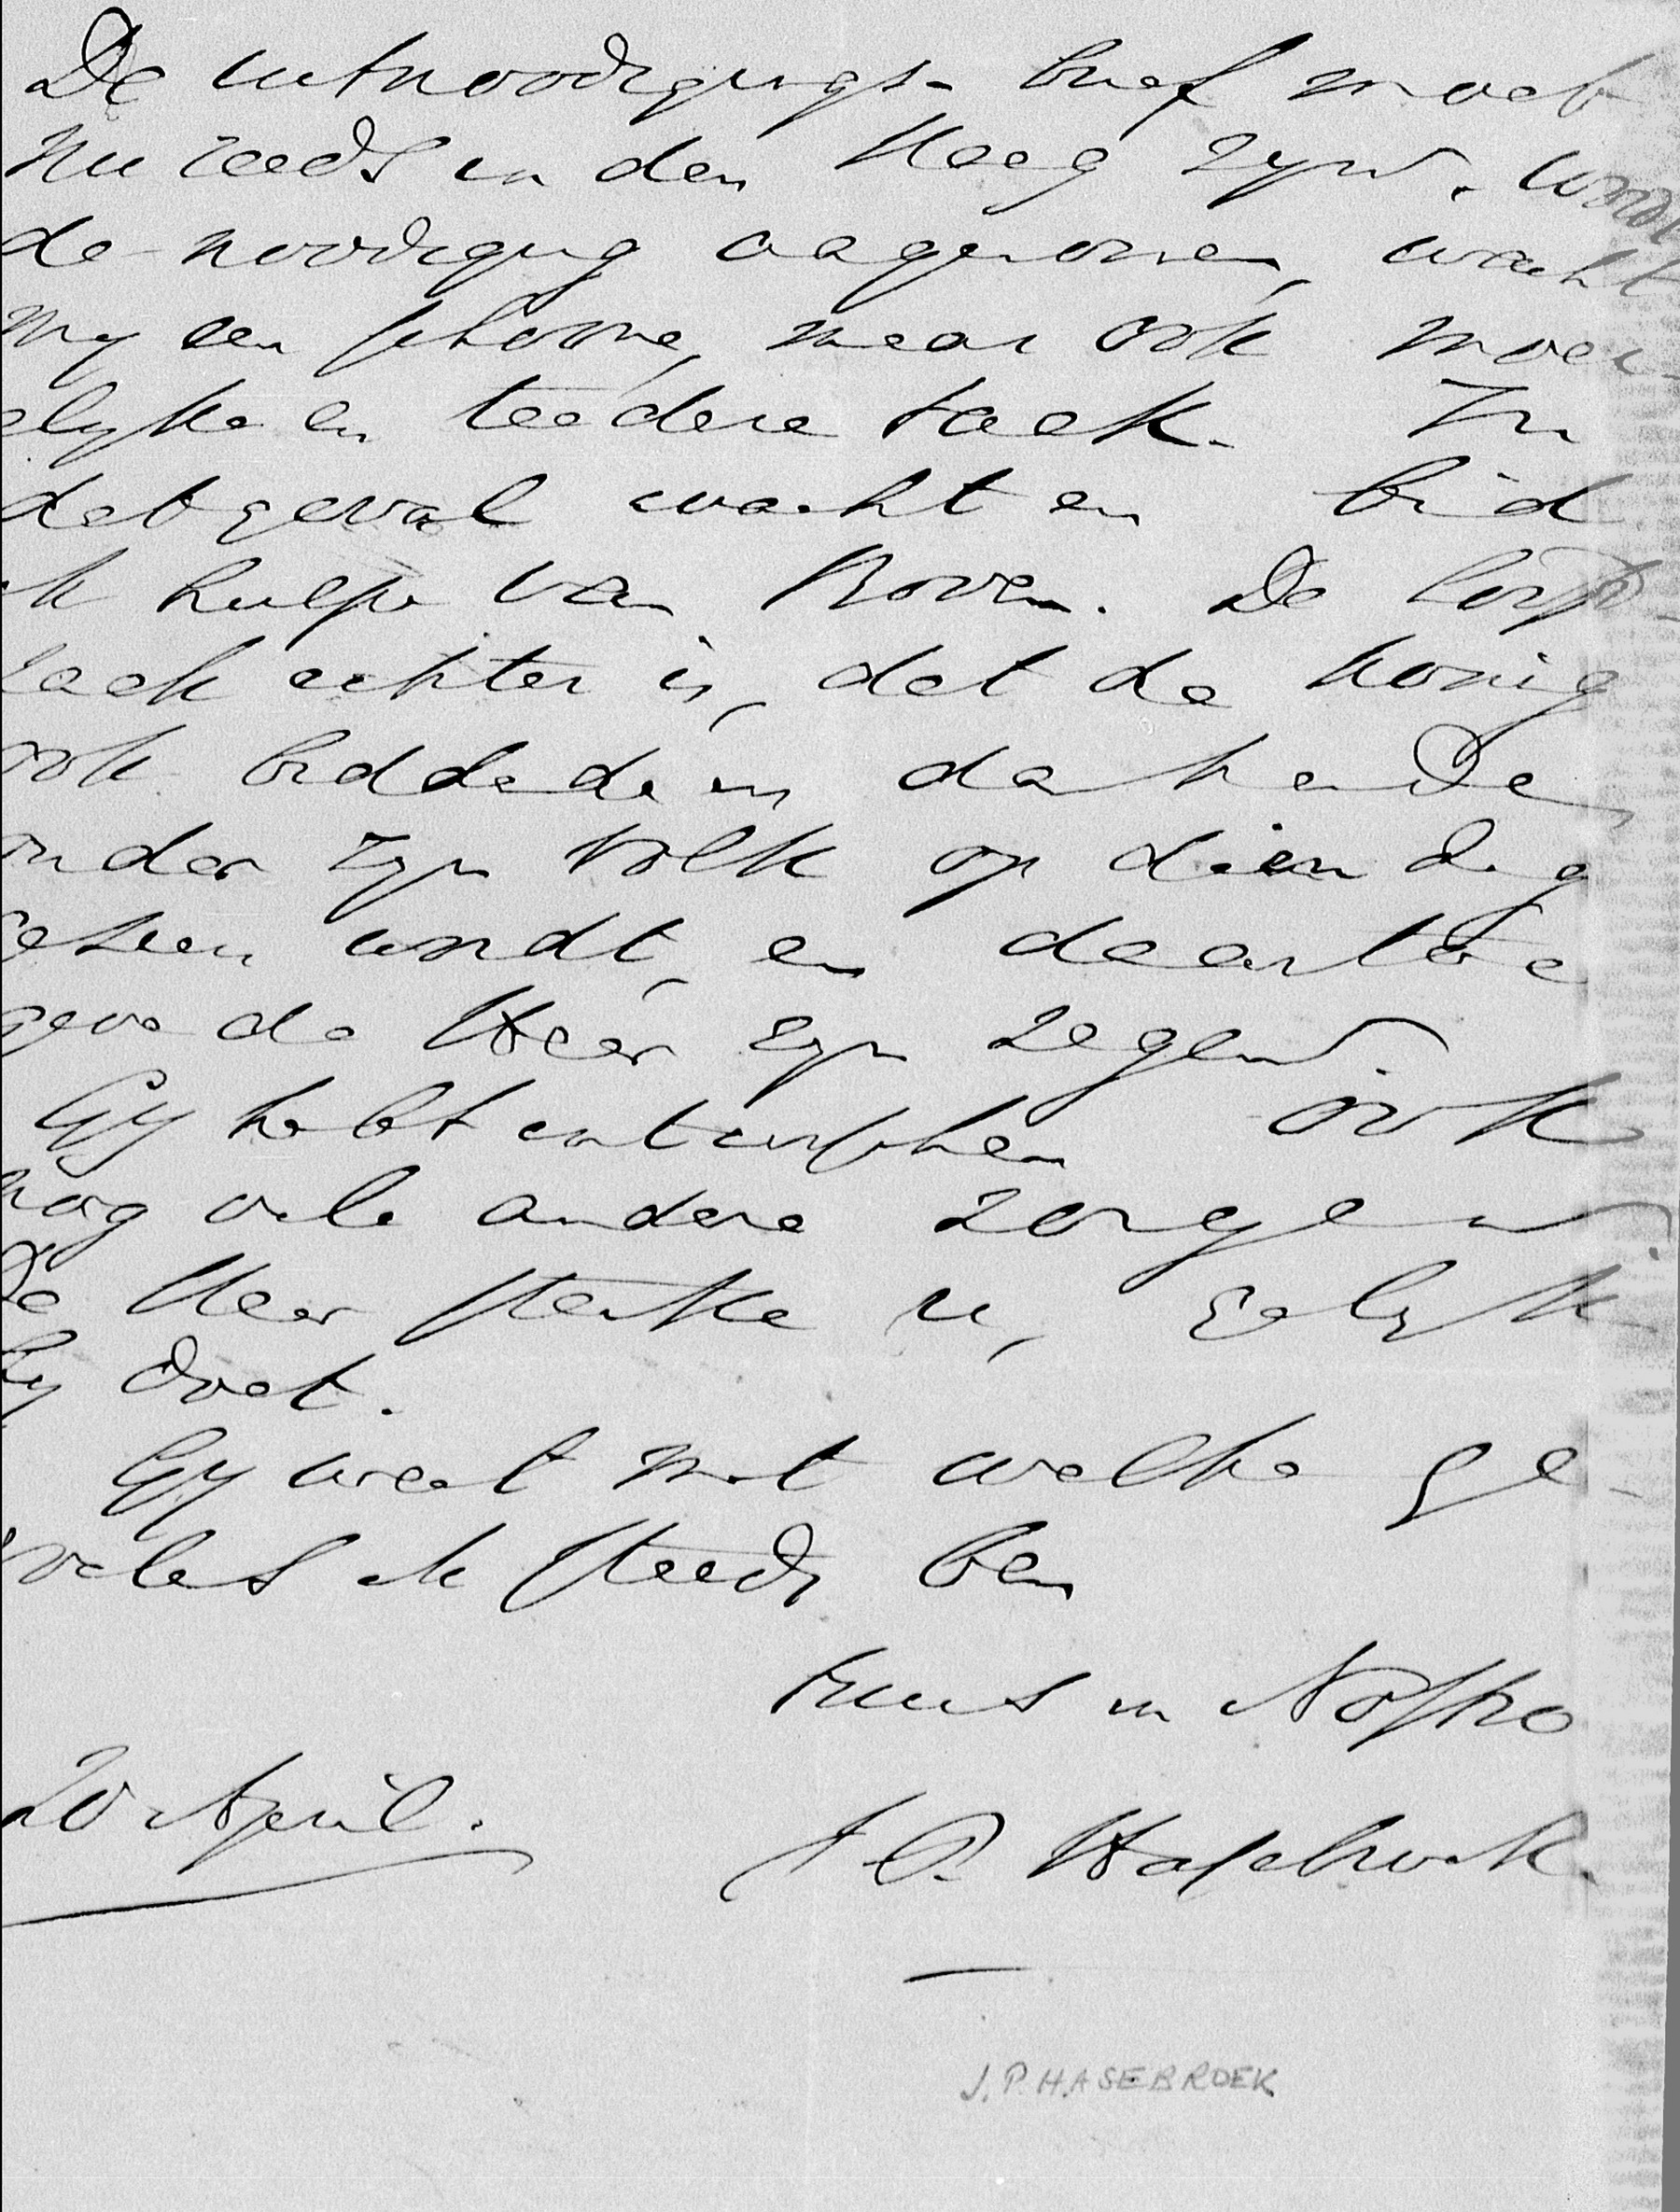 De uitnoodigings- brief moet
nu reeds in den Haag zyn. Wordt
de noodiging aagenomen, wacht
my een schoone, maar ook moei-
elyke en teedere taak. In
dat geval wacht en bid
ik hulpe van Boven. De
zaak echter is, dat de Koning
ook biddende en dankende
onder zyn volk op dien dag
gezien wordt, en daartoe
geve de Heer zyn zegen.
Gy hebt intusschen ook
nog vele andere zorgen.
De Heer sterke u, gelyk
hy doet.
Gy weet met welke ge-
voelens ik steeds ben
tuus in Nostro
20 April.
J P. Hasebroek.
J.P. HASEBROEK